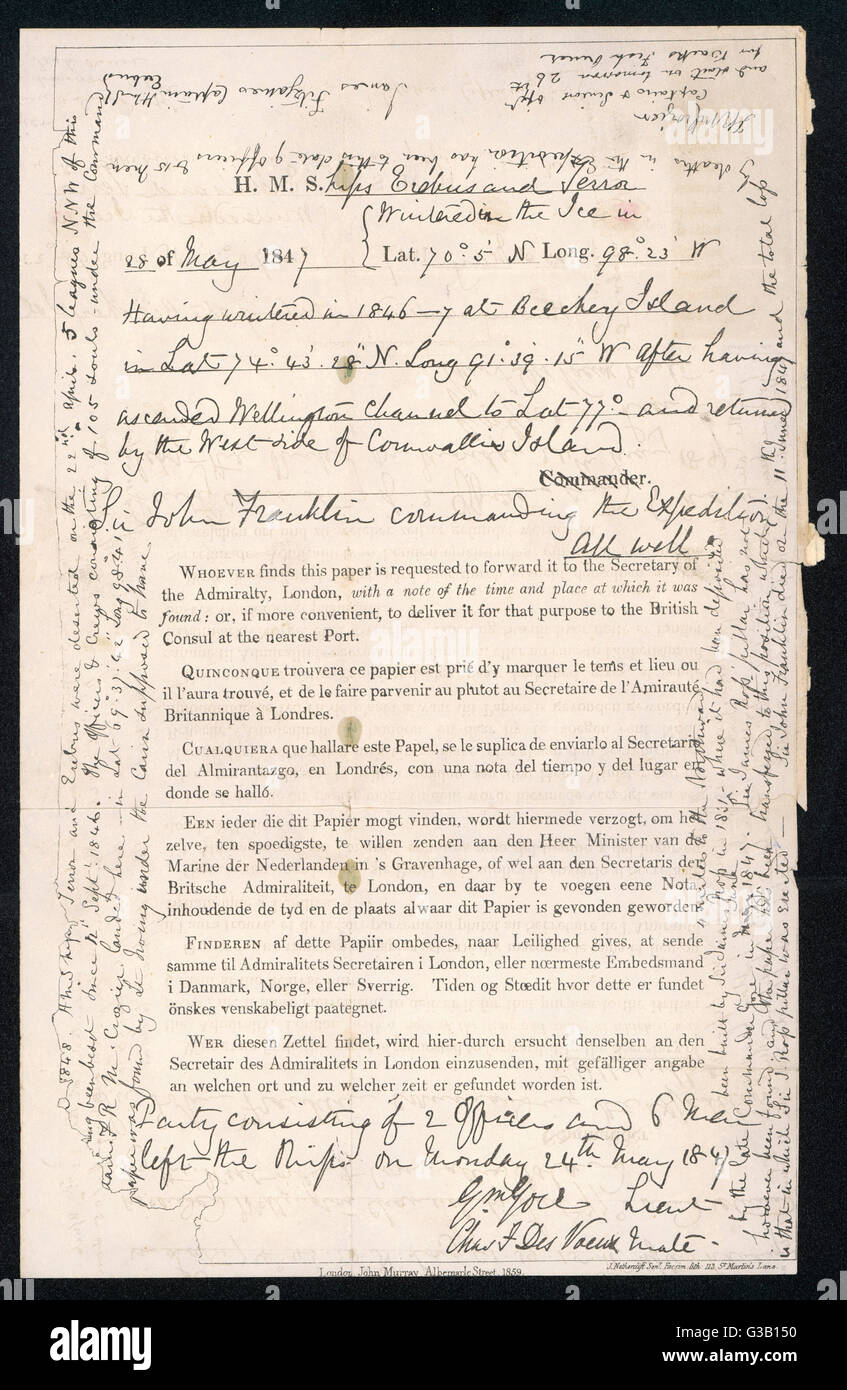 H. M. Ships Erebus and Terror
Wintered in the Ice in
28 of May 1847 Lat. 70° 5' N Long. 98° 23' W
Having wintered in 1846-7 at Beechey Island
in Lat 74° 43' 28" N. Long 91° 39' 15" W After having
ascended Wellington Channel to Lat 77° and returned
by the West side of Cornwallis Island.
Commander.
John Franklin commanding the Expedition
All well
WHOEVER finds this paper is requested to forward it to the Secretary of
the Admiralty, London, with a note of the time and place at which it was
found: or, if more convenient, to deliver it for that purpose to the British
Consul at the nearest Port.
QUINCONQUE trouvera ce papier est prié d'y marquer le tems et lieu ou
il l'aura trouvé, et de le faire parvenir au plutot au Secretaire de l'Amirauté
Britannique à Londres.
CUALQUIERA que hallare este Papel, se le suplica de enviarlo al Secretario
del Almirantazgo, en Londrés, con una nota del tiempo y del lugar en
donde se halló.
EEN ieder die dit Papier mogt vinden, wordt hiermede verzogt, om het
zelve, ten spoedigste, te willen zenden aan den Heer Minister van de
Marine der Nederlanden in 's Gravenhage, of wel aan den Secretaris der
Britsche Admiraliteit, te London, en daar by te voegen eene Nota,
inhoudende de tyd en de plaats alwaar dit Papier is gevonden geworden
FINDEREN af dette Papiir ombedes, naar Leilighed gives, at sende
samme til Admiralitets Secretairen i London, eller nœrmeste Embedsmand
i Danmark, Norge, eller Sverrig. Tiden og Stœdit hvor dette er fundet
önskes venskabeligt paategnet.
WER diesen Zettel findet, wird hier-durch ersucht denselben an den
Secretair des Admiralitets in London einzusenden, mit gefälliger angabe
an welchen ort und zu welcher zeit er gefundet worden ist.
Party consisting of 2 Officers and 6 Men
left the Ships on Monday 24th May 1847
Gm Gore Lieut
Chas F Des Voeux Mate
London, John Murray, Albemarle Street, 1859.
J. Netherclift Senr. Facsim. lith. 113, St. Martins Lane.
1848. H M Ships Terror and Erebus were deserted on the 22nd April. 5 leagues NNW of this
having been beset since 12th Septr 1846. The Officers & Crews consisting of 105 souls under the Command
Captain F R M Crozier landed here in Lat 69° 37' 42" Long 98° 41'
paper was found by Lt Irving under the Cairn supposed to have
been built by Sir James Ross in 1831 where it had been deposited
4 miles to the Northward
by the late Commander Gore in June 1847. Sir James Ross' pillar has not
however been found and the paper has been transferred to this position which
is that in which Sir J Ross pillar was erected Sir John Franklin died on the 11 June 1847 and the total loss
by deaths in the Expedition has been to this date 9 Officers & 15 Men
James Fitzjames Captain HMS
Erebus
F R M Crozier
Captain & Senior Offr
and start on tomorrow 26th
for Backs Fish River
alamy
G3B150
www.alamy.com